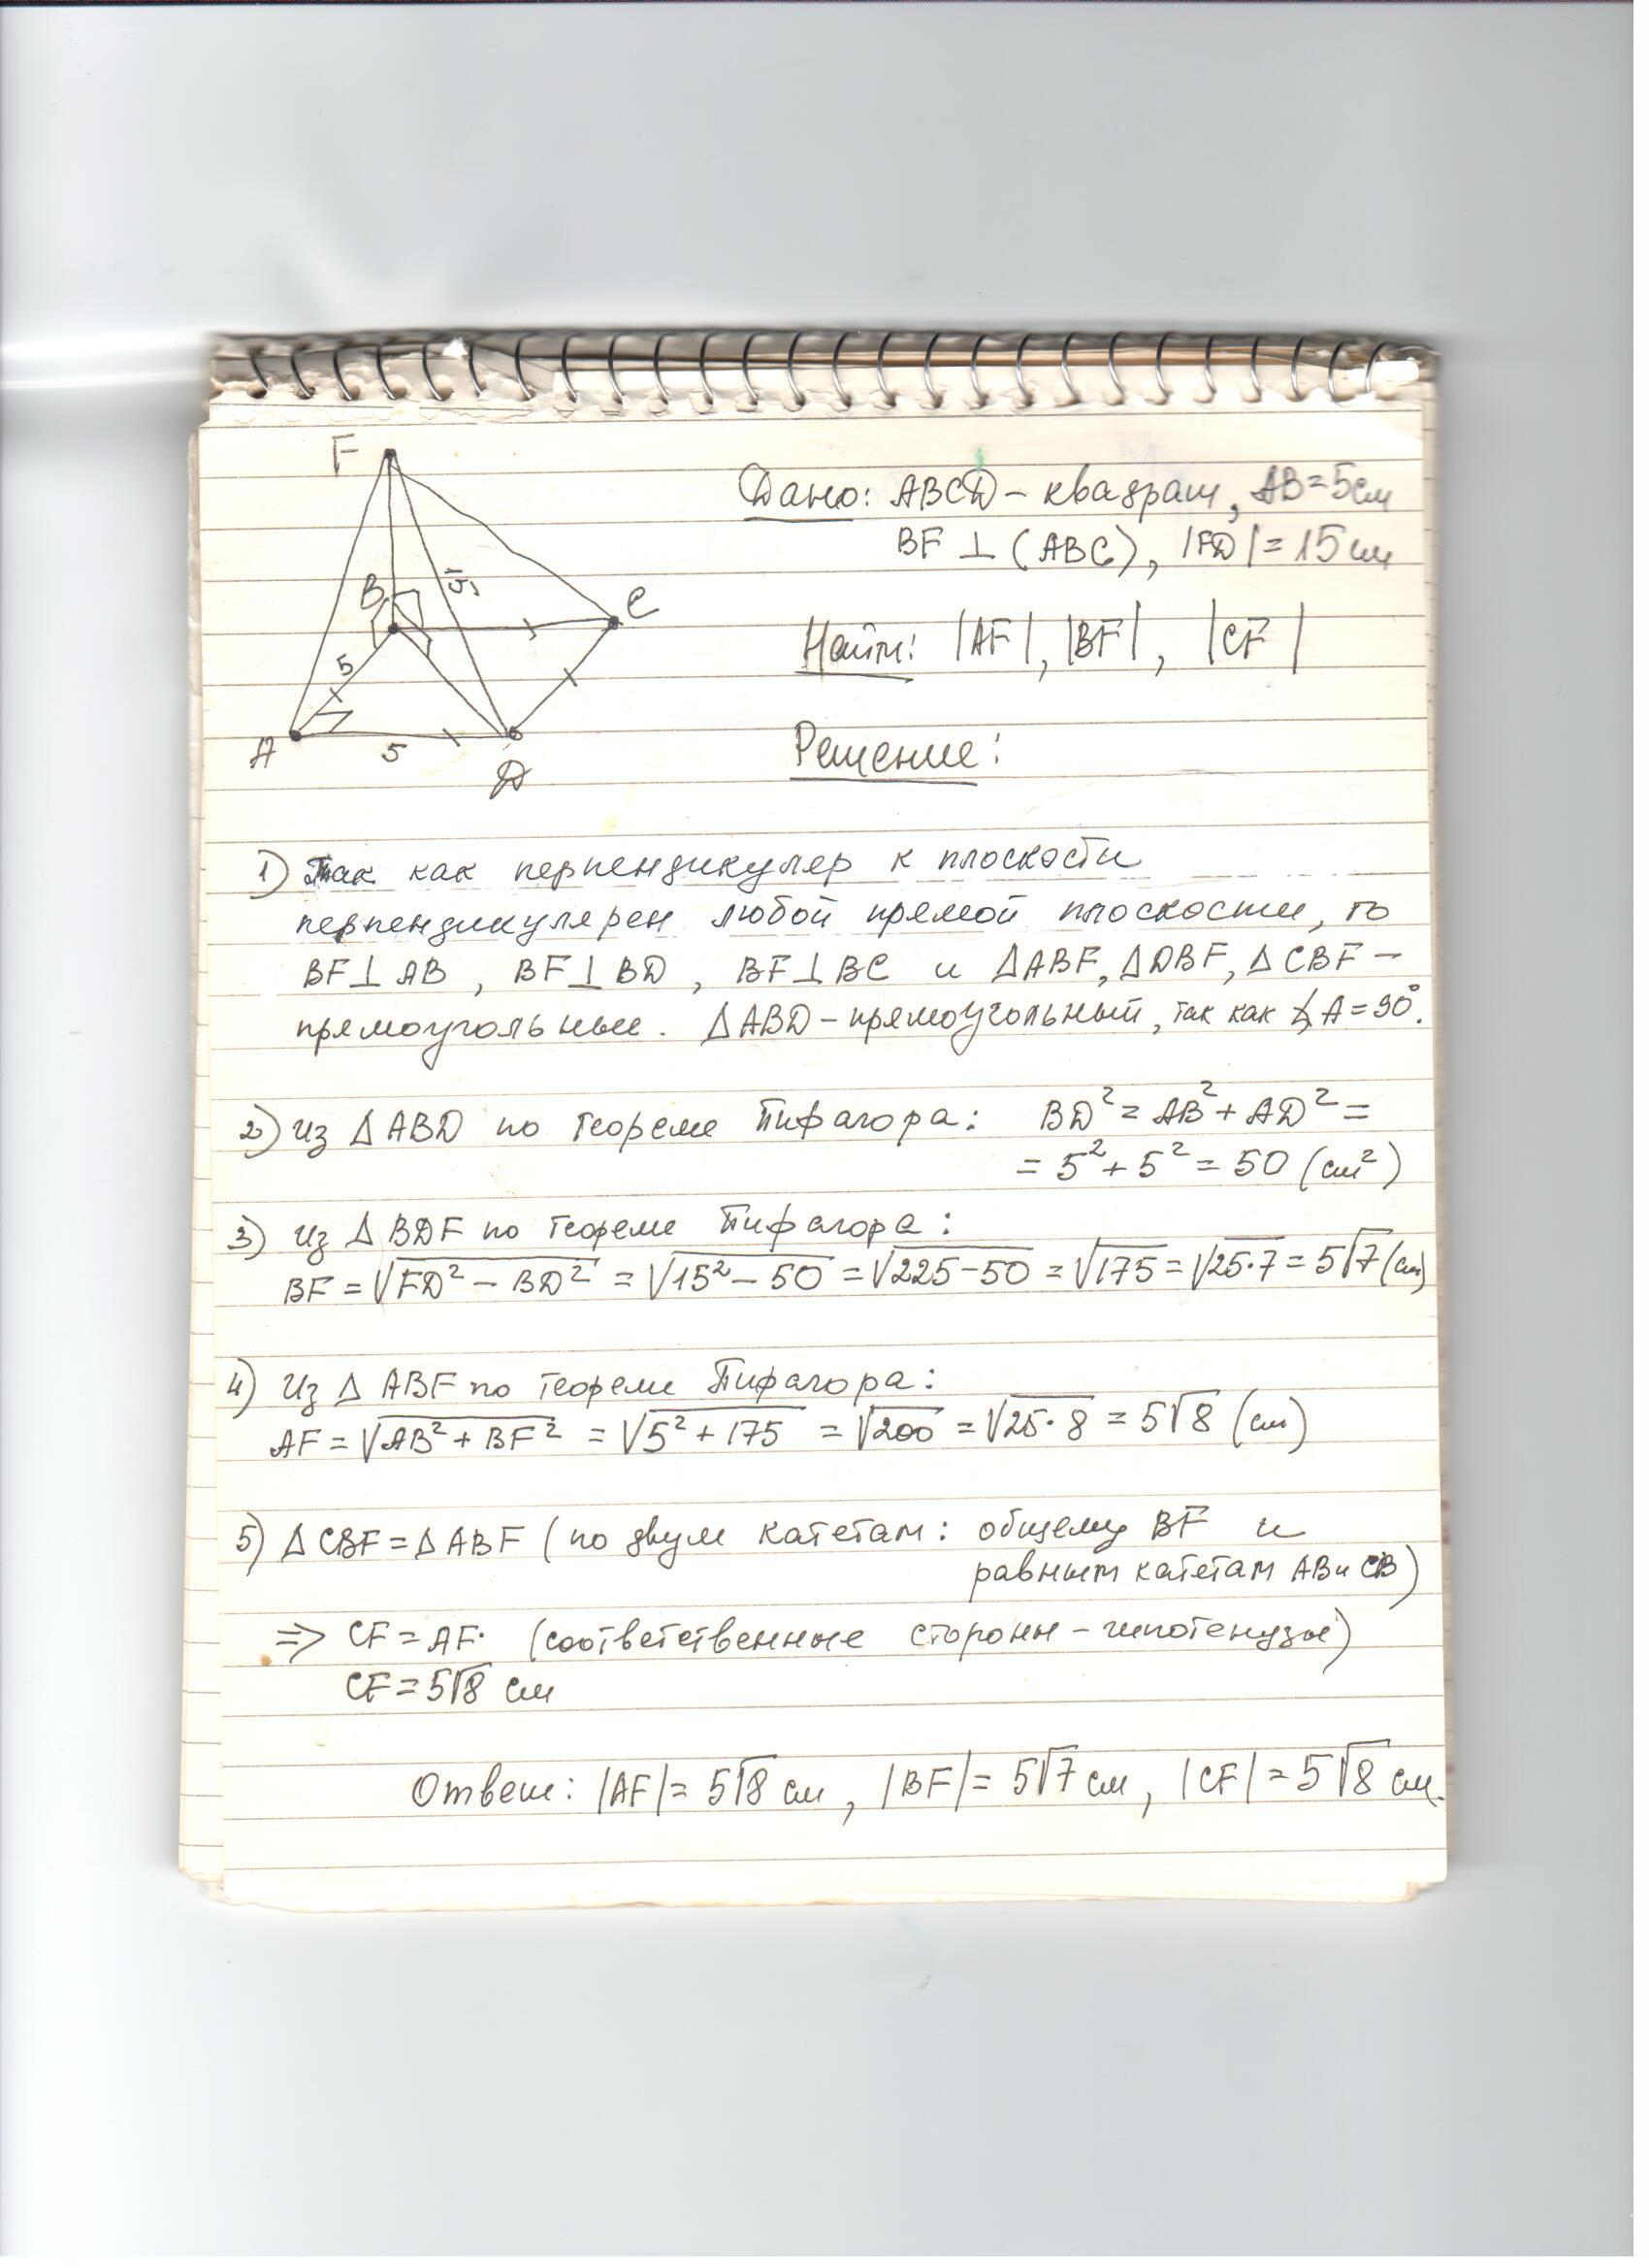 F
Дано: ABCD – квадрат, AB = 5 см
BF ⊥ (ABC), |FD| = 15 см
B
15
C
Найти: |AF|, |BF|, |CF|
5
A
5
D
Решение:
1) Так как перпендикуляр к плоскости
перпендикулярен любой прямой плоскости, то
BF ⊥ AB, BF ⊥ BD, BF ⊥ BC и ΔABF, ΔDBF, ΔCBF –
прямоугольные. ΔABD – прямоугольный, так как ∠A = 90°.
2) Из ΔABD по теореме Пифагора: BD² = AB² + AD² =
= 5² + 5² = 50 (см²)
3) Из ΔBDF по теореме Пифагора:
BF = √FD² – BD² = √15² – 50 = √225 – 50 = √175 = √25·7 = 5√7 (см)
4) Из ΔABF по теореме Пифагора:
AF = √AB² + BF² = √5² + 175 = √200 = √25·8 = 5√8 (см)
5) ΔCBF = ΔABF (по двум катетам: общему BF и
равным катетам AB и CB)
⇒ CF = AF. (соответственные стороны – гипотенузы)
CF = 5√8 см
Ответ: |AF| = 5√8 см, |BF| = 5√7 см, |CF| = 5√8 см.